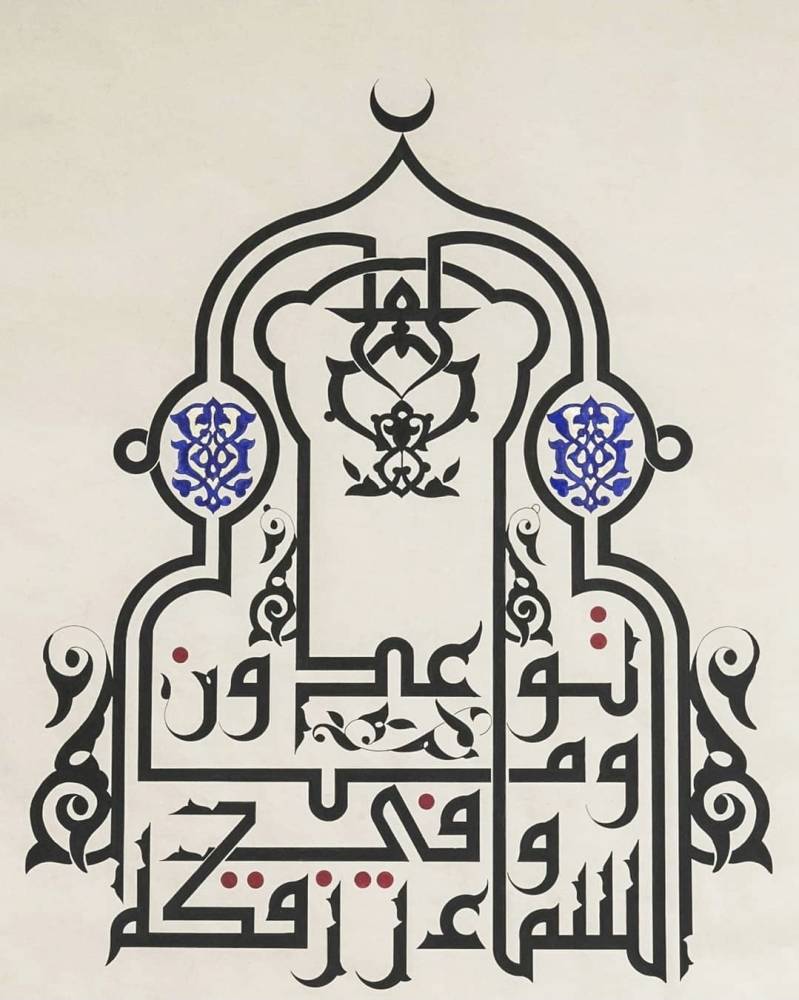 وفي
السماء رزقكم
وما
توعدون